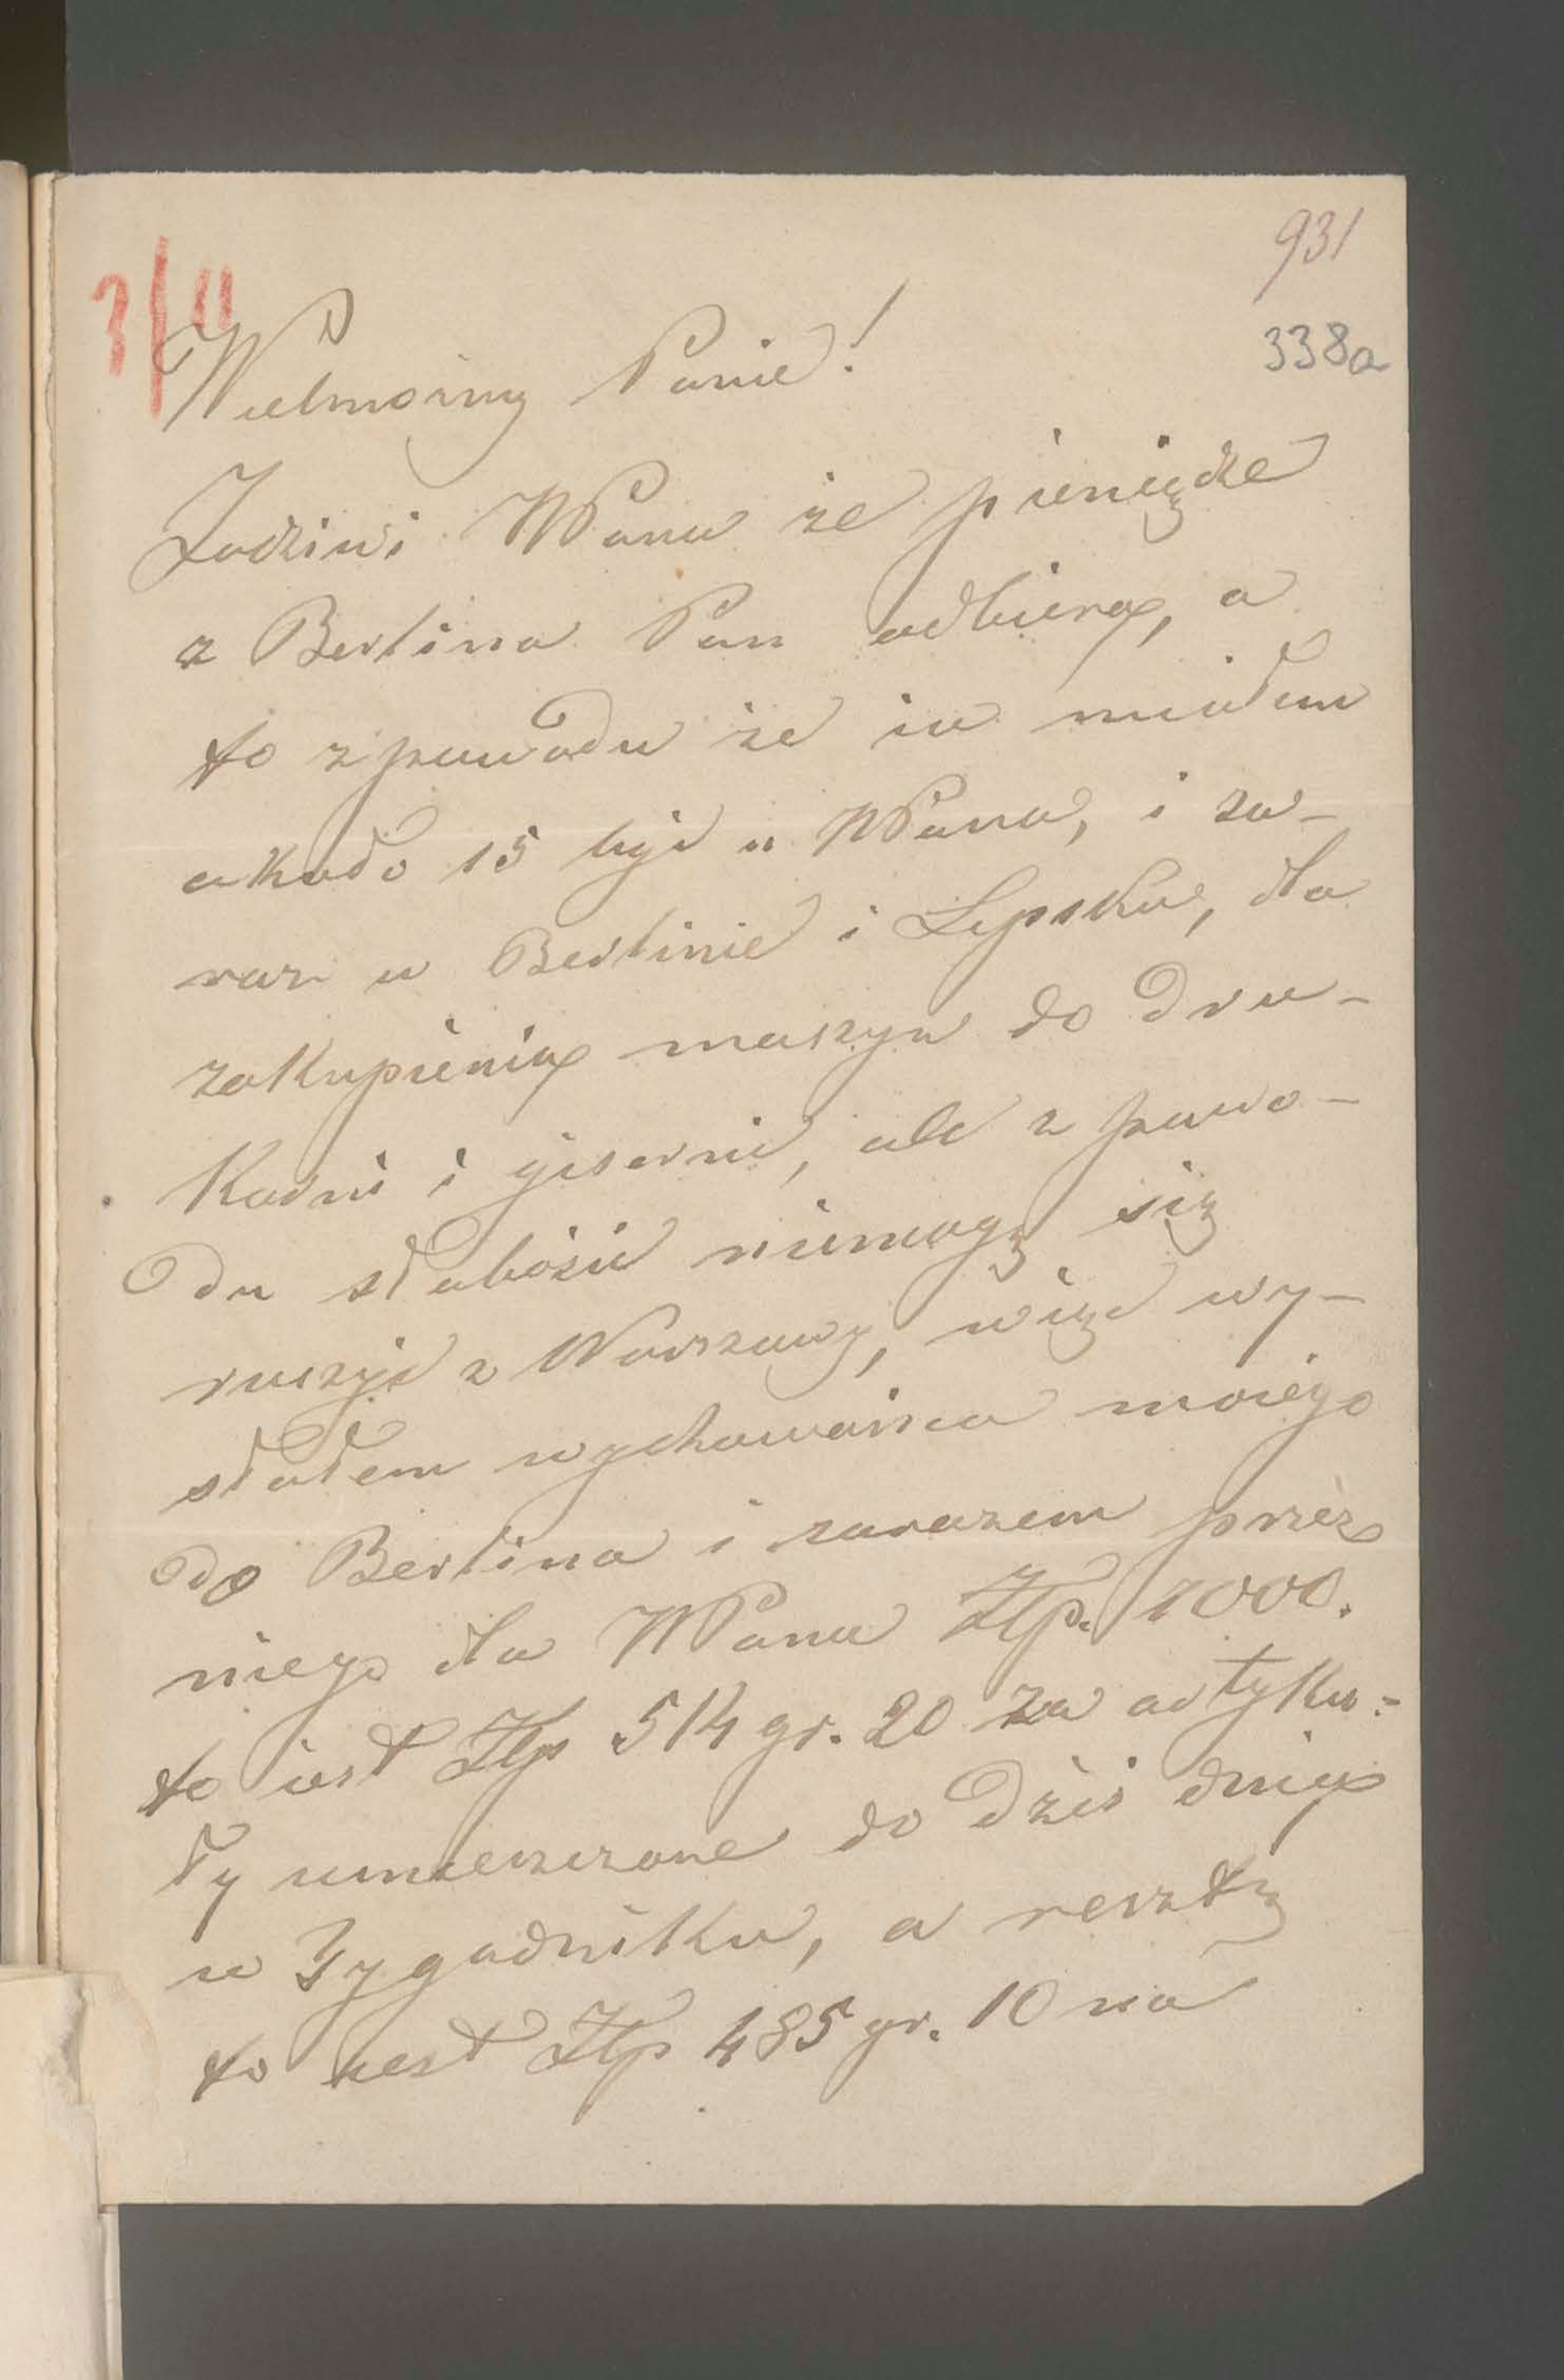 931
3/II
338a
Wielmożny Panie!
Zadziwi WPana że pieniądze
z Berlina Pan odbiera, a
to z powodu że ia miałem
około 15 być u WPana, i za-
raz w Berlinie i Lipsku, dla
zakupienia maszyn do Dru-
karni i giserni, ale z powo-
du słabości niemogę się
ruszyć z Warszawy, więc wy-
słałem wychowańca moiego
do Berlina i zarazem przez
niego dla WPana Złp. 1000.
to iest Złp 514 gr. 20 za artyku-
ły umieszczone do dziś dnia
w Tygodniku, a resztę
to iest Złp 485 gr. 10 na